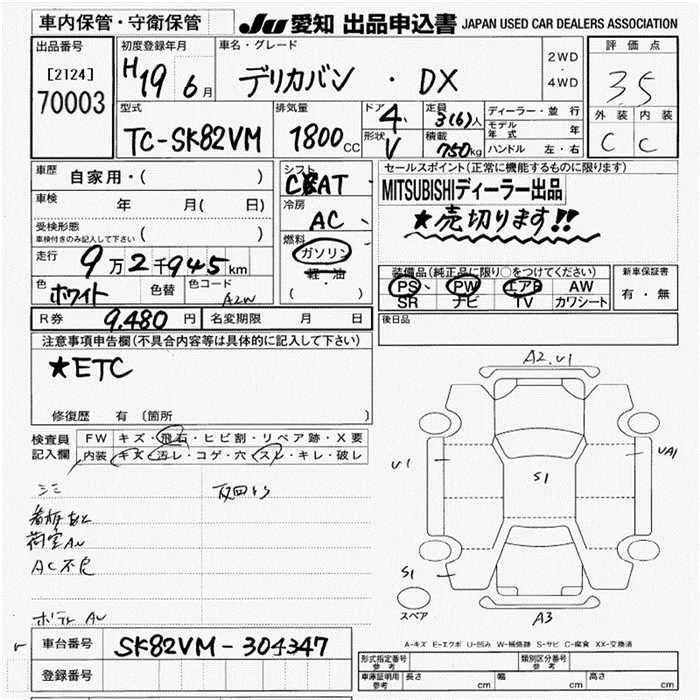 車内保管・守衛保管
JU 愛知 出品申込書 JAPAN USED CAR DEALERS ASSOCIATION
出品番号
[2124]
70003
初度登録年月
H19 6月
車名・グレード
デリカバン ・ DX
2WD
・
4WD
評価点
3.5
外装 内装
C C
型式
TC-SK82VM
排気量
1800cc
ドア
4
形状
V
定員
3(6)人
積載
750kg
ディーラー・並行
モデル年式 年
ハンドル 左・右
車歴
自家用・( )
車検 年 月( 日)
受検形態
車検付きのみ記入して下さい ( )
走行
9万2千945km
色
ホワイト
色替
色コード
A2W
シフト
AT
冷房
AC
燃料
ガソリン
軽・油
・
( )
セールスポイント(正常に機能するものに限ります)
MITSUBISHIディーラー出品
★売切ります!!
装備品(純正品に限り○をつけてください)
PS PW エアB AW
SR ナビ TV カワシート
新車保証書
有・無
R券 9,480円 名変期限 月 日
後日品
注意事項申告欄(不具合内容等は具体的に記入して下さい)
★ETC
修復歴 有 〔箇所 〕
検査員記入欄
FW キズ・飛石・ヒビ割・リペア跡・X要
内装 キズ・汚レ・コゲ・穴・スレ・キレ・破レ
看板あと
荷室AU
AC不良
ボディAU
A2.U1
U1
UA1
S1
S1
スペア
A3
A-キズ E-エクボ U-凹み W-補修跡 S-サビ C-腐食 XX-交換済
車台番号 SK82VM-304347
登録番号
形式指定番号 参考
類別区分番号 参考
車庫証明用 参考 長さ cm 幅 cm 高さ cm